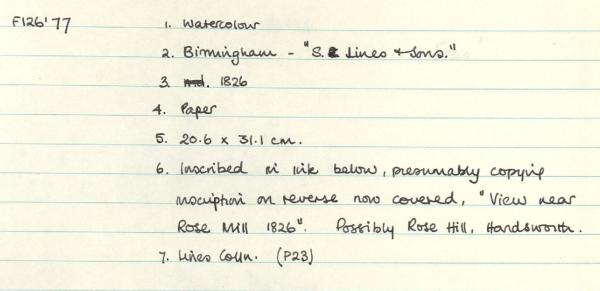 F126'77 1. Watercolour
2. Birmingham - "S. Lines + Sons."
3. n.d. 1826
4. Paper
5. 20.6 x 31.1 cm.
6. Inscribed in ink below, presumably copying
inscription on reverse now covered, "View near
Rose Mill 1826". Possibly Rose Hill, Handsworth.
7. Lines Colln. (P23)